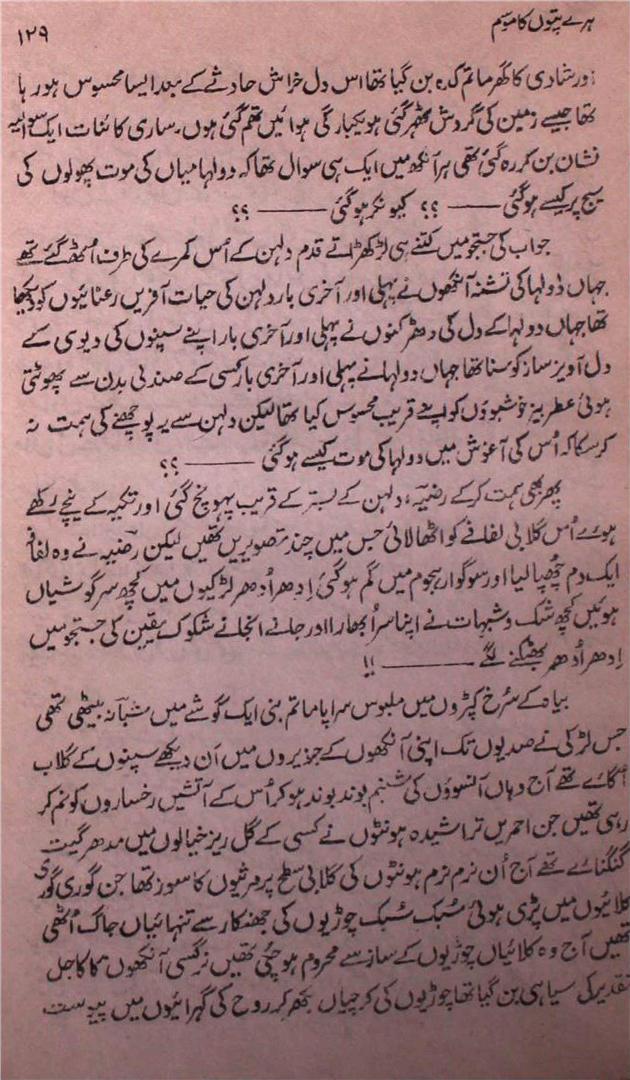 ہرے پتوں کا موسم
۱۲۹
اور شادی کا گھر ماتم کدہ بن گیا تھا اس دل خراش حادثے کے بعد ایسا محسوس ہو رہا
تھا جیسے زمین کی گردش ٹھہر گئی ہو یکبارگی ہوائیں تھم گئی ہوں۔ ساری کائنات ایک سوالیہ
نشان بن کر رہ گئی تھی ہر آنکھ میں ایک ہی سوال تھا کہ دولہا میاں کی موت پھولوں کی
سیج پر کیسے ہو گئی ——— ؟؟ کیونکر ہو گئی ——— ؟؟
جواب کی جستجو میں کتنے ہی لڑکھڑاتے قدم دلہن کے اُس کمرے کی طرف اُٹھ گئے تھے
جہاں دولہا کی تشنہ آنکھوں نے پہلی اور آخری بار دلہن کی حیات آفریں رعنائیوں کو دیکھا
تھا جہاں دولہا کے دل کی دھڑکنوں نے پہلی اور آخری بار اپنے سپنوں کی دیوی کے
دل آویز ساز کو سنا تھا جہاں دولہا نے پہلی اور آخری بار کسی کے صندلی بدن سے پھوٹتی
ہوئی عطر بیز خوشبوؤں کو اپنے قریب محسوس کیا تھا لیکن دلہن سے یہ پوچھنے کی ہمت نہ
کر سکا کہ اُس کی آغوش میں دولہا کی موت کیسے ہو گئی ——— ؟؟
پھر بھی ہمت کر کے رضیہ، دلہن کے بستر کے قریب پہونچ گئی اور تکیہ کے نیچے رکھے
ہوئے اُس گلابی لفافے کو اٹھا لائی جس میں چند تصویریں تھیں لیکن رضیہ نے وہ لفافہ
ایک دم چھپا لیا اور سوگوار ہجوم میں گم ہو گئی اِدھر اُدھر لڑکیوں میں کچھ سرگوشیاں
ہوئیں کچھ شک و شبہات نے اپنا سر اُبھارا اور جانے انجانے شکوک یقین کی جستجو میں
اِدھر اُدھر بھٹکنے لگے ——— !!
بیاہ کے سُرخ کپڑوں میں ملبوس سراپا ماتم بنی ایک گوشے میں شبانہ بیٹھی تھی
جس لڑکی نے صدیوں تک اپنی آنکھوں کے جزیروں میں اَن دیکھے سپنوں کے گلاب
اُگائے تھے آج وہاں آنسوؤں کی شبنم بوند بوند ہو کر اُس کے آتشیں رخساروں کو نم کر
رہی تھیں جن احمریں تراشیدہ ہونٹوں نے کسی کے گل ریز خیالوں میں مدھر گیت
گنگنائے تھے آج اُن نرم نرم ہونٹوں کی گلابی سطح پر مرثیوں کا سوز تھا جن گوری گوری
کلائیوں میں پڑی ہوئی سُبک سُبک چوڑیوں کی جھنکار سے تنہائیاں جاگ اُٹھی
تھیں آج وہ کلائیاں چوڑیوں کے ساز سے محروم ہو چکی تھیں نرگسی آنکھوں کا کاجل
تقدیر کی سیاہی بن گیا تھا چوڑیوں کی کرچیاں بکھر کر روح کی گہرائیوں میں پیوست